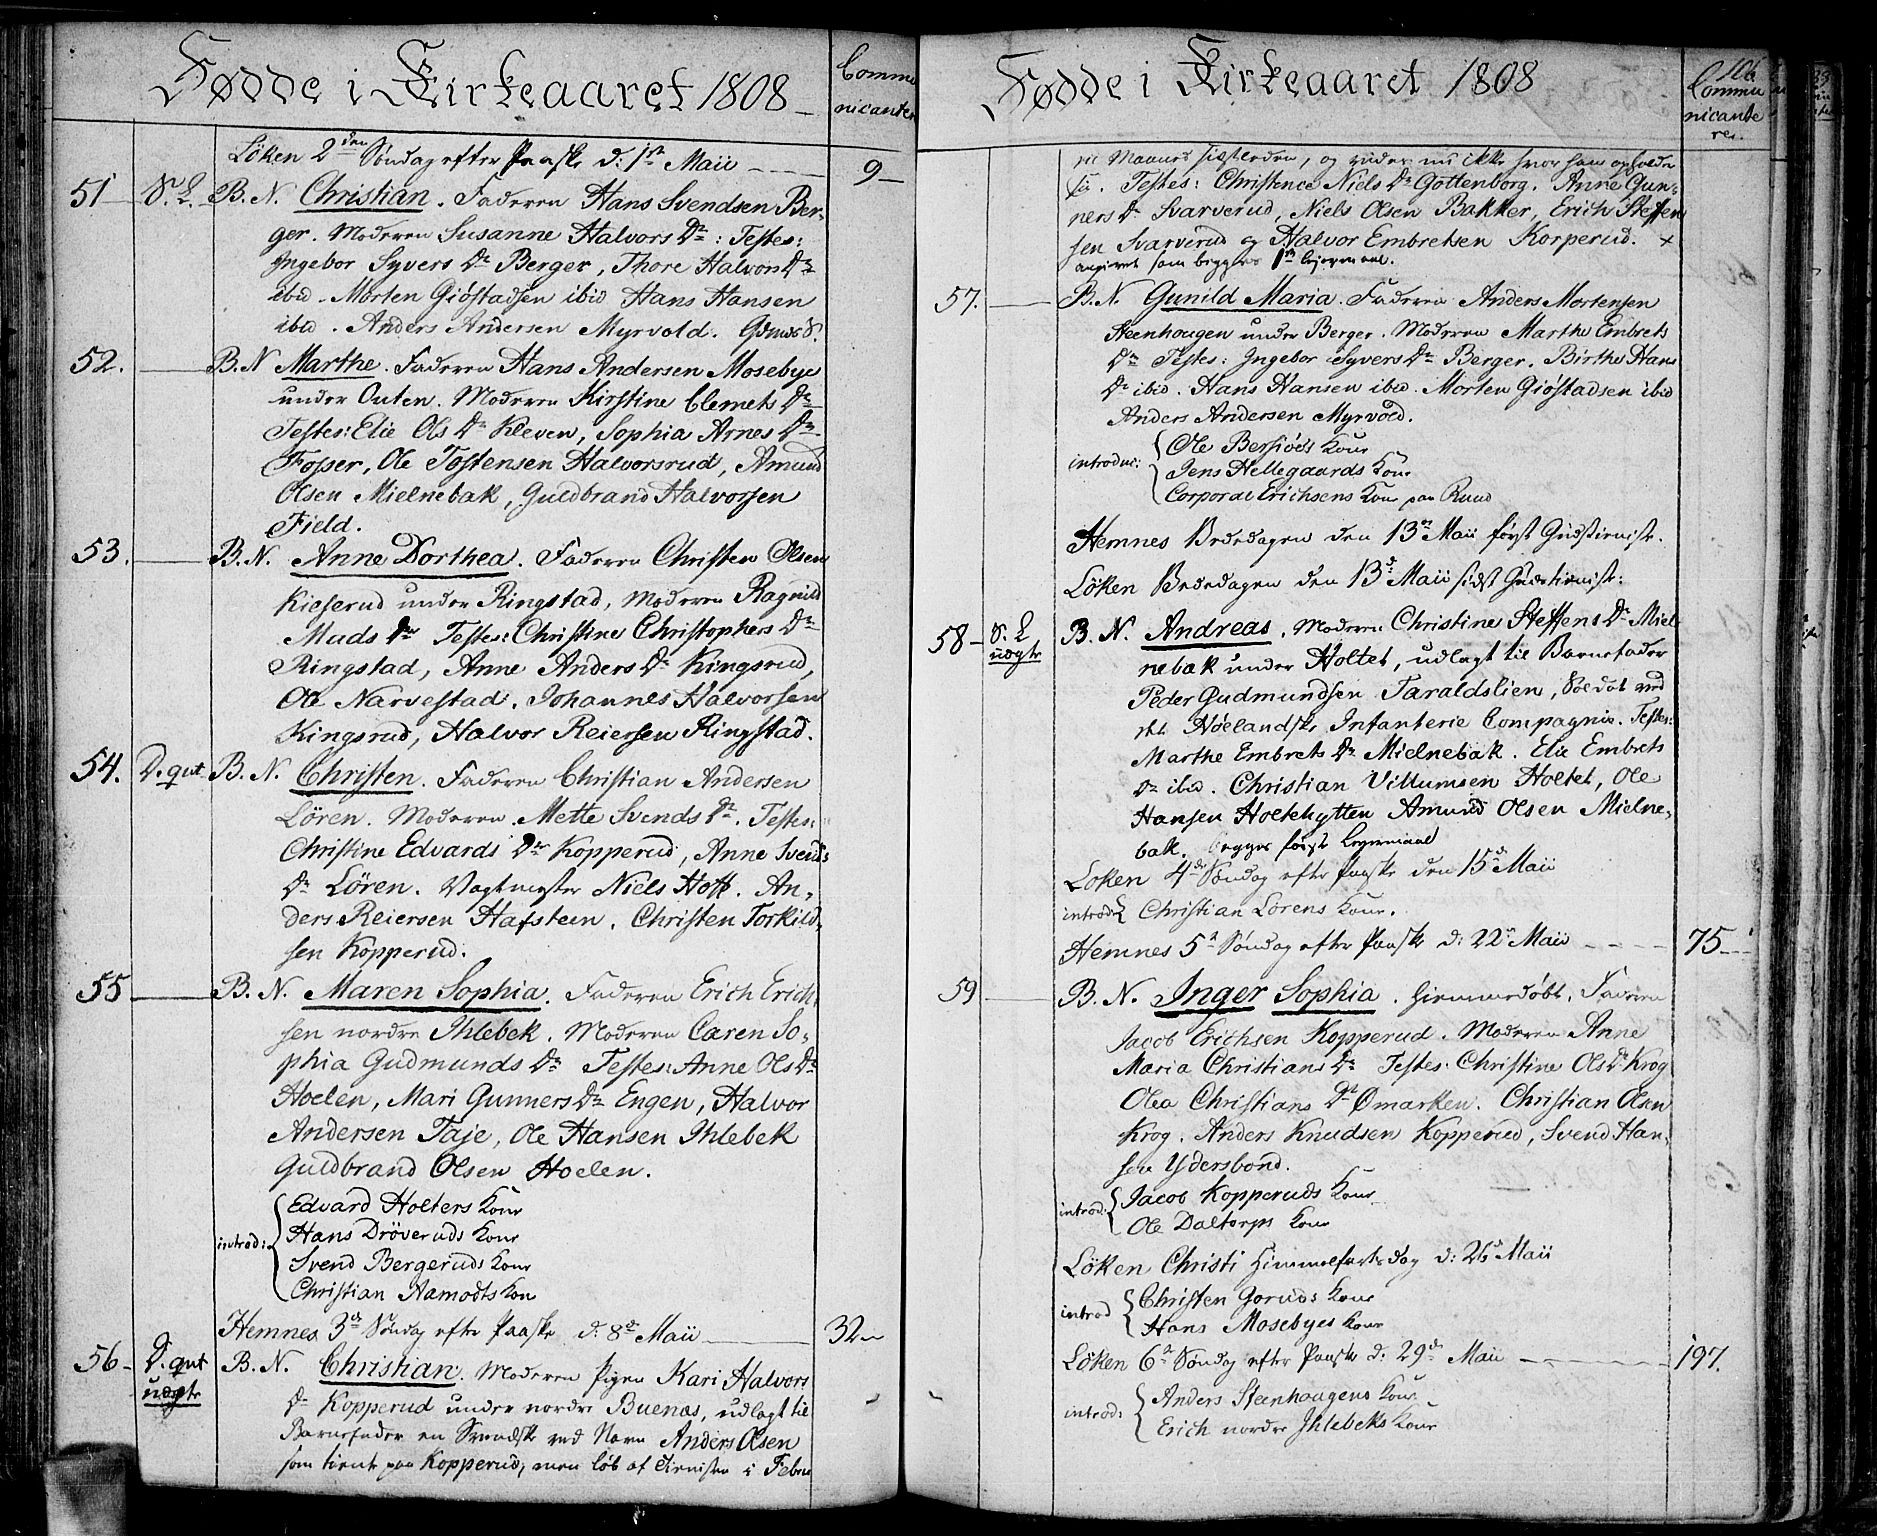 Fødde i Kirkeaaret 1808
Commu
nicantes
Løken 2den Søndag efter Paaske d: 1ste Maii
9
51 S. L. B. N. Christian. Faderen Hans Svendsen Ber-
ger. Moderen Susanne Halvors Dr: Testes:
Ingebor Syvers Dr Berger, Thore Halvors Dr
ibid. Morten Giøstadsen ibid Hans Hansen
ibid. Anders Andersen Myrvold.
52. B. N Marthe. Faderen Hans Andersen Mosebye
under Outen. Moderen Kirstine Clemets Dr
Testes: Elie Ols Dr Kleven, Sophia Arnes Dr
Fosser, Ole Tostensen Halvorsrud, Amund
Olsen Mielnebak, Guldbrand Halvorssen
Field.
53. B. N. Anne Dorthea. Faderen Christen Olsen
Kieserud under Ringstad, Moderen Ragnild
Mads Dr Testes: Christine Christophers Dr
Ringstad, Anne Anders Dr Kingsrud,
Ole Narvestad. Johannes Halvorsen
Kingsrud, Halvor Reiersen Ringstad.
54. D. qvt B. N. Christen. Faderen Christian Andersen
Lören. Moderen Mette Svends Dr. Testes:
Christine Edvards Dr Kopperud, Anne Svends
Dr Lören. Vagtmester Niels Hoff. An-
ders Reiersen Hafsteen. Christen Torkild-
sen Kopperud.
55 B. N. Maren Sophia. Faderen Erich Erich-
sen nordre Ihlebek. Moderen Caren So-
phia Gudmunds Dr Testes: Anne Ols Dr
Hoelen, Mari Gunners Dr Engen, Halvor
Andersen Taje, Ole Hansen Ihlebek
Guldbrand Olsen Hoelen.
Edvard Holters Kone
Hans Dröveruds Kone
introd:
Svend Bergeruds Kone
Christian Aamodts Kone
Hemnes 3de Søndag efter Paaske d: 8de Maii
32
56 D. qvt B. N. Christian. Moderen Pigen Kari Halvors
uægte Dr Kopperud under nordre Buenæs, udlagt til
Barnefader en Svendsk ved Navn Anders Olsen
som tiente paa Kopperud, men løb af Tienisten i Febru
Fødde i Kirkeaaret 1808
106
Commu
nicante
res.
Maaned sidstleden, og vides nu ikke hvor han opholder
sig. Testes: Christence Niels Dr Gottenborg. Anne Gun-
ners Dr Svarverud, Niels Olsen Bakker, Erich Steffen
sen Svarverud og Halvor Embretsen Korperud. +
angivet som begges 1ste leiermaal.
57. B. N. Gunild Maria. Faderen Anders Mortensen
Steenhougen under Berger. Moderen Marthe Embrets
Dr Testes: Ingebor Syvers Dr Berger. Birthe Hans
Dr ibid. Hans Hansen ibid. Morten Giøstadsen ibid
Anders Andersen Myrvold.
Ole Bersiøes Kone
introduc: Jens Hellegaards Kone
Corporal Erichsens Kone paa Ruud
Hemnes Bededagen den 13de Maii først Gudstieniste.
Løken Bededagen den 13de Maii sidst Gudstieniste:
58 S. L B. N. Andreas. Moderen Christine Steffens Dr Miel-
uægte nebak under Holtet, udlagt til Barnefader
Peder Gudmundsen Taraldslien, Soldat ved
det Høelandske Infanterie Compagnie. Testes:
Marthe Embrets Dr Mielnebak. Elie Embrets
Dr ibid. Christian Villumsen Holtet, Ole
Hansen Holtehytten Amund Olsen Mielne-
bak. begges første Leiermaal
Løken 4de Søndag efter Paaske den 15de Maii
introd Christian Lörens Kone.
Hemnes 5te Søndag efter Paaske d: 22de Maii
75
59 B. N. Inger Sophia. hiemmedøbt. Faderen
Jacob Erichsen Kopperud. Moderen Anne
Maria Christians Dr Testes: Christine Ols Dr Krog
Olea Christians Dr Ømarken. Christian Olsen
Krog. Anders Knudsen Kopperud, Svend Han-
sen Ydersbond.
introd: Jacob Kopperuds Kone
Ole Daltorps Kone
Løken Christi Himmelfartsdag d: 26de Maii
introd Christen Goruds Kone
Hans Mosebyes Kone
Løken 6te Søndag efter Paaske d: 29de Maii
197.
introd: Anders Steenhougens Kone
Erich nordre Ihlebeks Kone